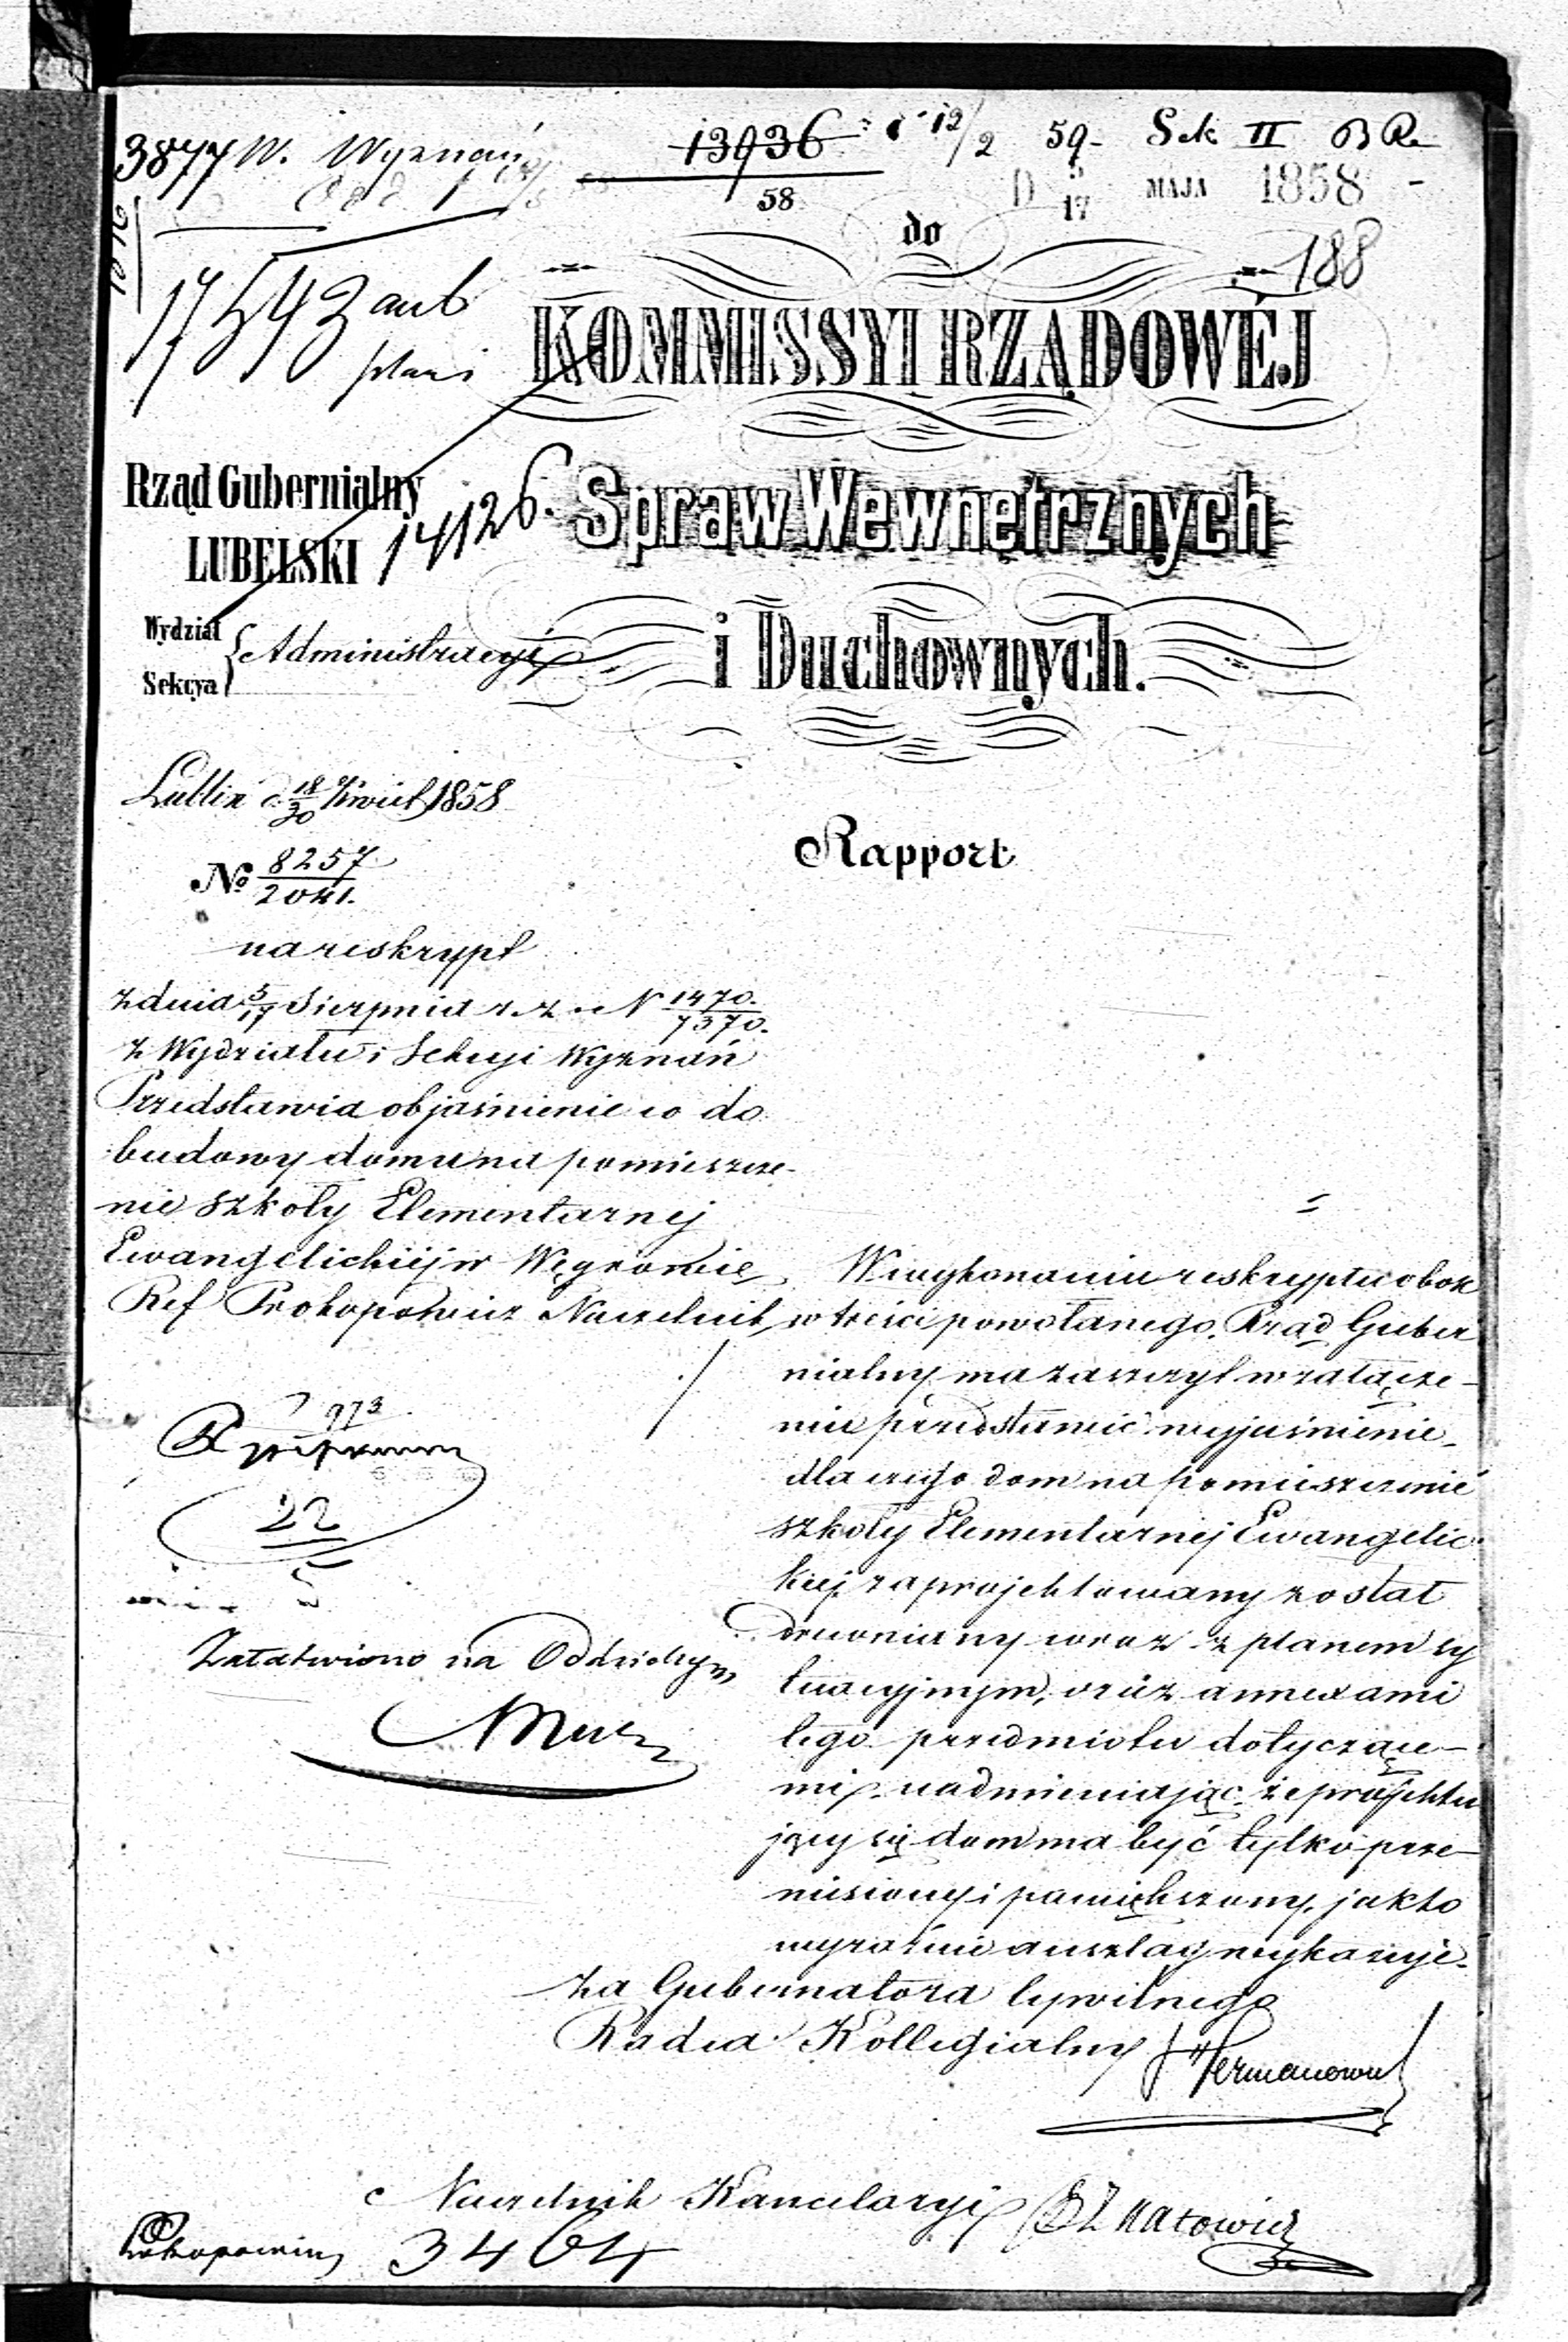 3877 W. Wyznań 13936 12/2 59 Sek II B R.
58
D 5/17 MAJA 1858
188
17542 anb
plani
do
KOMMISSYI RZĄDOWÉJ
Rząd Gubernialny
LUBELSKI
14126.
Spraw Wewnętrznych
i Duchownych.
Wydział
Sekcya
Administracyi
Lublin d. 18/30 Kwiet 1858
Rapport
№ 8257/2041.
na reskrypt
z dnia 5/17 Sierpnia r. z. N 1470./7370.
z Wydziału i Sekcyi Wyznań
Przedstawia objaśnienie co do
budowy domu na pomieszcze-
nie szkoły Elementarnej
Ewangelickiej w Węgrowie
Ref Prokopowicz Naczelnik
W wykonaniu reskryptu obok
w treści powołanego, Rząd Guber
nialny ma zaszczyt w załącze-
niu przedstawić wyjaśnienie
dla czego dom na pomieszczenie
szkoły Elementarnej Ewangelic-
kiej zaprojektowany został
drewniany wraz z planem sy
tuacyjnym, oraz annexami
tego przedmiotu dotyczące-
mi, nadmieniając, że projektu
jący się dom ma być tylko prze-
niesiony i powiększony, jak to
wyraźnie anszlag wykazuje.
973
22
Załatwiono na Oddzielnym
Za Gubernatora Cywilnego
Radca Kollegialny J Hermanowicz
Naczelnik Kancelaryi
Prokopowicz 3464